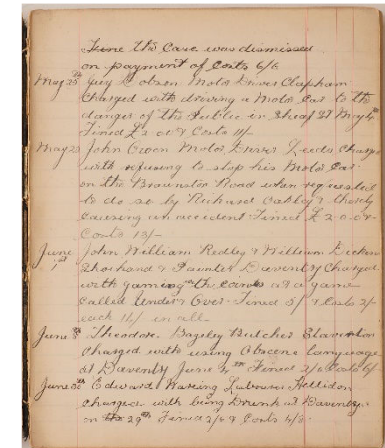 Fine the Case was dismissed
on payment of Costs 6/6
May 25th Guy Dobson Motor Driver Clapham
Charged with driving a Motor Car to the
danger of the Public in Sheaf St May 4th
Fined £2 0 0 & Costs
May 25 John Motor Driver Leeds Charged
with refusing to stop his Motor Car
on the Braunston Road when requested
to do so by Richard Oakley & thereby
causing an accident Fined £2.0.0
Costs 13/-
June 1st John William Redley & William Dicken
& Painter Daventry Charged
with gaming with coins at a game
called Under & Over Fined 5/ & Costs
each in all
June 8th Theodore Bazeley Butcher Staverton
Charged with using Obscene language
at Daventry June Fined 2/6 Costs
June 30th Edward Waring Labourer Hellidon
Charged with being Drunk at Daventry
on the 29th Fined 2/6 & Costs 4/6